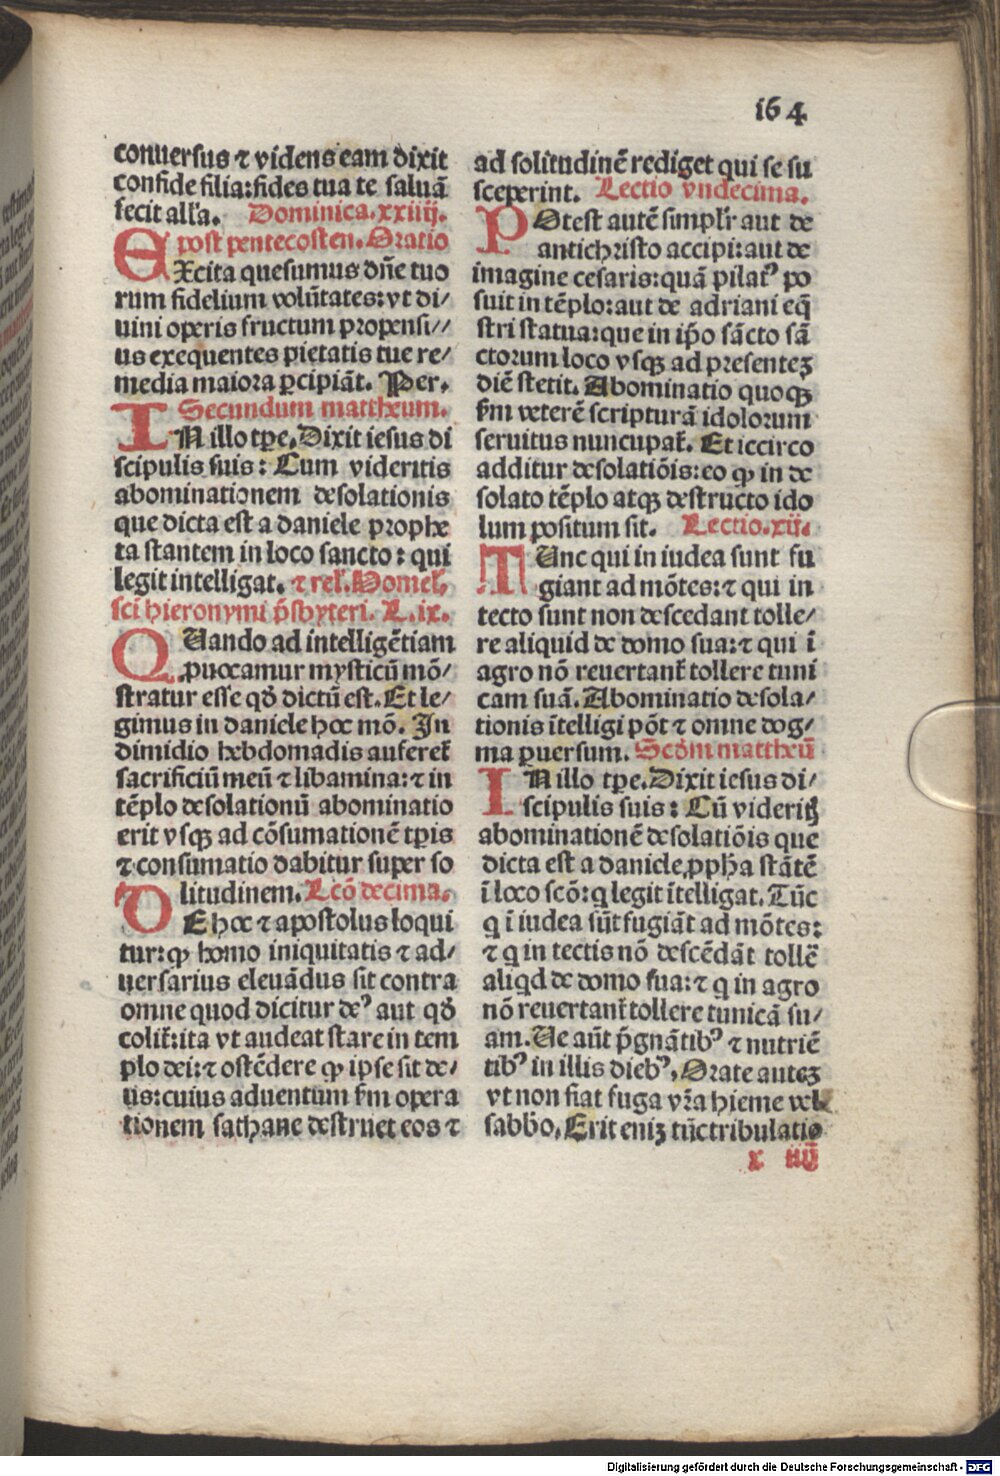 164
conuersus ⁊ videns eam dixit
confide filia: fides tua te saluā
fecit all'a. Dominica. xxiiij.
post pentecosten. Oratio
EXcita quesumus dn̄e tuo
rum fidelium volūtates: vt di/
uini operis fructum propensi//
us exequentes pietatis tue re/
media maiora ꝑcipiāt. Per.
Secundum mattheum.
IN illo tp̄e. Dixit iesus di
scipulis suis: Cum videritis
abominationem desolationis
que dicta est a daniele prophe
ta stantem in loco sancto: qui
legit intelligat. ⁊ rel'. Homel'.
sci hieronymi p̄sbyteri. L. ix.
QUando ad intelligētiam
ꝓuocamur mysticū mō/
stratur esse qd̄ dictū est. Et le/
gimus in daniele hoc mō. In
dimidio hebdomadis auferet᷑
sacrificiū meū ⁊ libamina: ⁊ in
tēplo desolationū abominatio
erit vsqꝫ ad cōsumationē tp̄is
⁊ consumatio dabitur super so
litudinem. Lcō decima.
DE hoc ⁊ apostolus loqui
tur: ꝙ homo iniquitatis ⁊ ad/
uersarius eleuādus sit contra
omne quod dicitur deꝰ aut qd̄
colit᷑: ita vt audeat stare in tem
plo dei: ⁊ ostēdere ꝙ ipse sit de/
us: cuius aduentum fm̄ opera
tionem sathane destruet eos ⁊
ad solitudinē rediget qui se su
sceperint. Lectio vndecima.
POtest autē simpl'r aut de
antichristo accipi: aut de
imagine cesaris: quā pilatꝰ po
suit in tēplo: aut de adriani eq̄
stri statua: que in ip̄o sācto sā
ctorum loco vsqꝫ ad presentez
diē stetit. Abominatio quoqꝫ
fm̄ veterē scripturā idolorum
seruitus nuncupat᷑. Et iccirco
additur desolatiōis: eo ꝙ in de
solato tēplo atqꝫ destructo ido
lum positum sit. Lectio. xij.
TUnc qui in iudea sunt fu
giant ad mōtes: ⁊ qui in
tecto sunt non descedant tolle/
re aliquid de domo sua: ⁊ qui ī
agro nō reuertant᷑ tollere tuni
cam suā. Abominatio desola/
tionis ītelligi pōt ⁊ omne dog/
ma ꝑuersum. Scd̄m mattheū
IN illo tp̄e. Dixit iesus di/
scipulis suis: Cū videritꝭ
abominationē desolatiōis que
dicta est a daniele ꝓph̄a stātē
ī loco scō: q legit ītelligat. Tūc
q ī iudea sūt fugiāt ad mōtes:
⁊ q in tectis nō descēdāt tollē
aliqd de domo sua: ⁊ q in agro
nō reuertant᷑ tollere tunicā su/
am. Ue aūt p̄gnātibꝰ ⁊ nutriē
tibꝰ in illis diebꝰ. Orate autez
vt non fiat fuga vr̄a hieme vel
sabbo. Erit eniz tūc tribulatio
x iiij
Digitalisierung gefördert durch die Deutsche Forschungsgemeinschaft - DFG